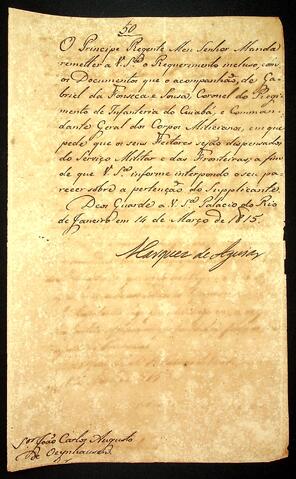 50
O Principe Regente Meu Senhor Manda
remetter a V. S.ª o Requerimento incluso, com
os Documentos que o acompanhão, de Ga-
briel da Fonseca e Sousa, Coronel do Regi-
mento de Infanteria do Cuiabá, e Comman-
dante Geral dos Corpos Milicianos, em que
pede que os seus Feitores sejão dispensados
do Serviço Militar e das Fronteiras; a fim
de que V. S.ª informe interpondo o seu pa-
recer sobre a pertenção do Supplicante.
Deos Guarde a V. S.ª Palacio do Rio
de Janeiro em 14 de Março de 1815.
Marquez de Aguiar
S.or João Carlos Augusto
de Oeynhausen